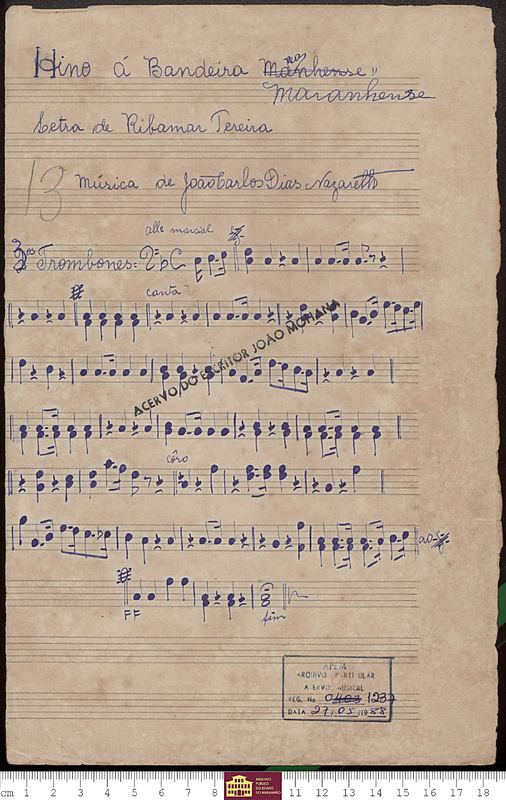 Hino á Bandeira Manhense
nas
Maranhense
Letra de Ribamar Pereira
13 Música de João Carlos Dias Nazareth
alle marcial
3os Trombones: C
canta
ACERVO DO ESCRITOR JOÃO MOHANA
côro
ao
FF
fim
APEM
ARQUIVO PARTICULAR
ACERVO MUSICAL
REG. No 0403 1237
DATA 27/05/1988
cm 1 2 3 4 5 6 7 8 11 12 13 14 15 16 17 18
ARQUIVO PÚBLICO DO ESTADO DO MARANHÃO